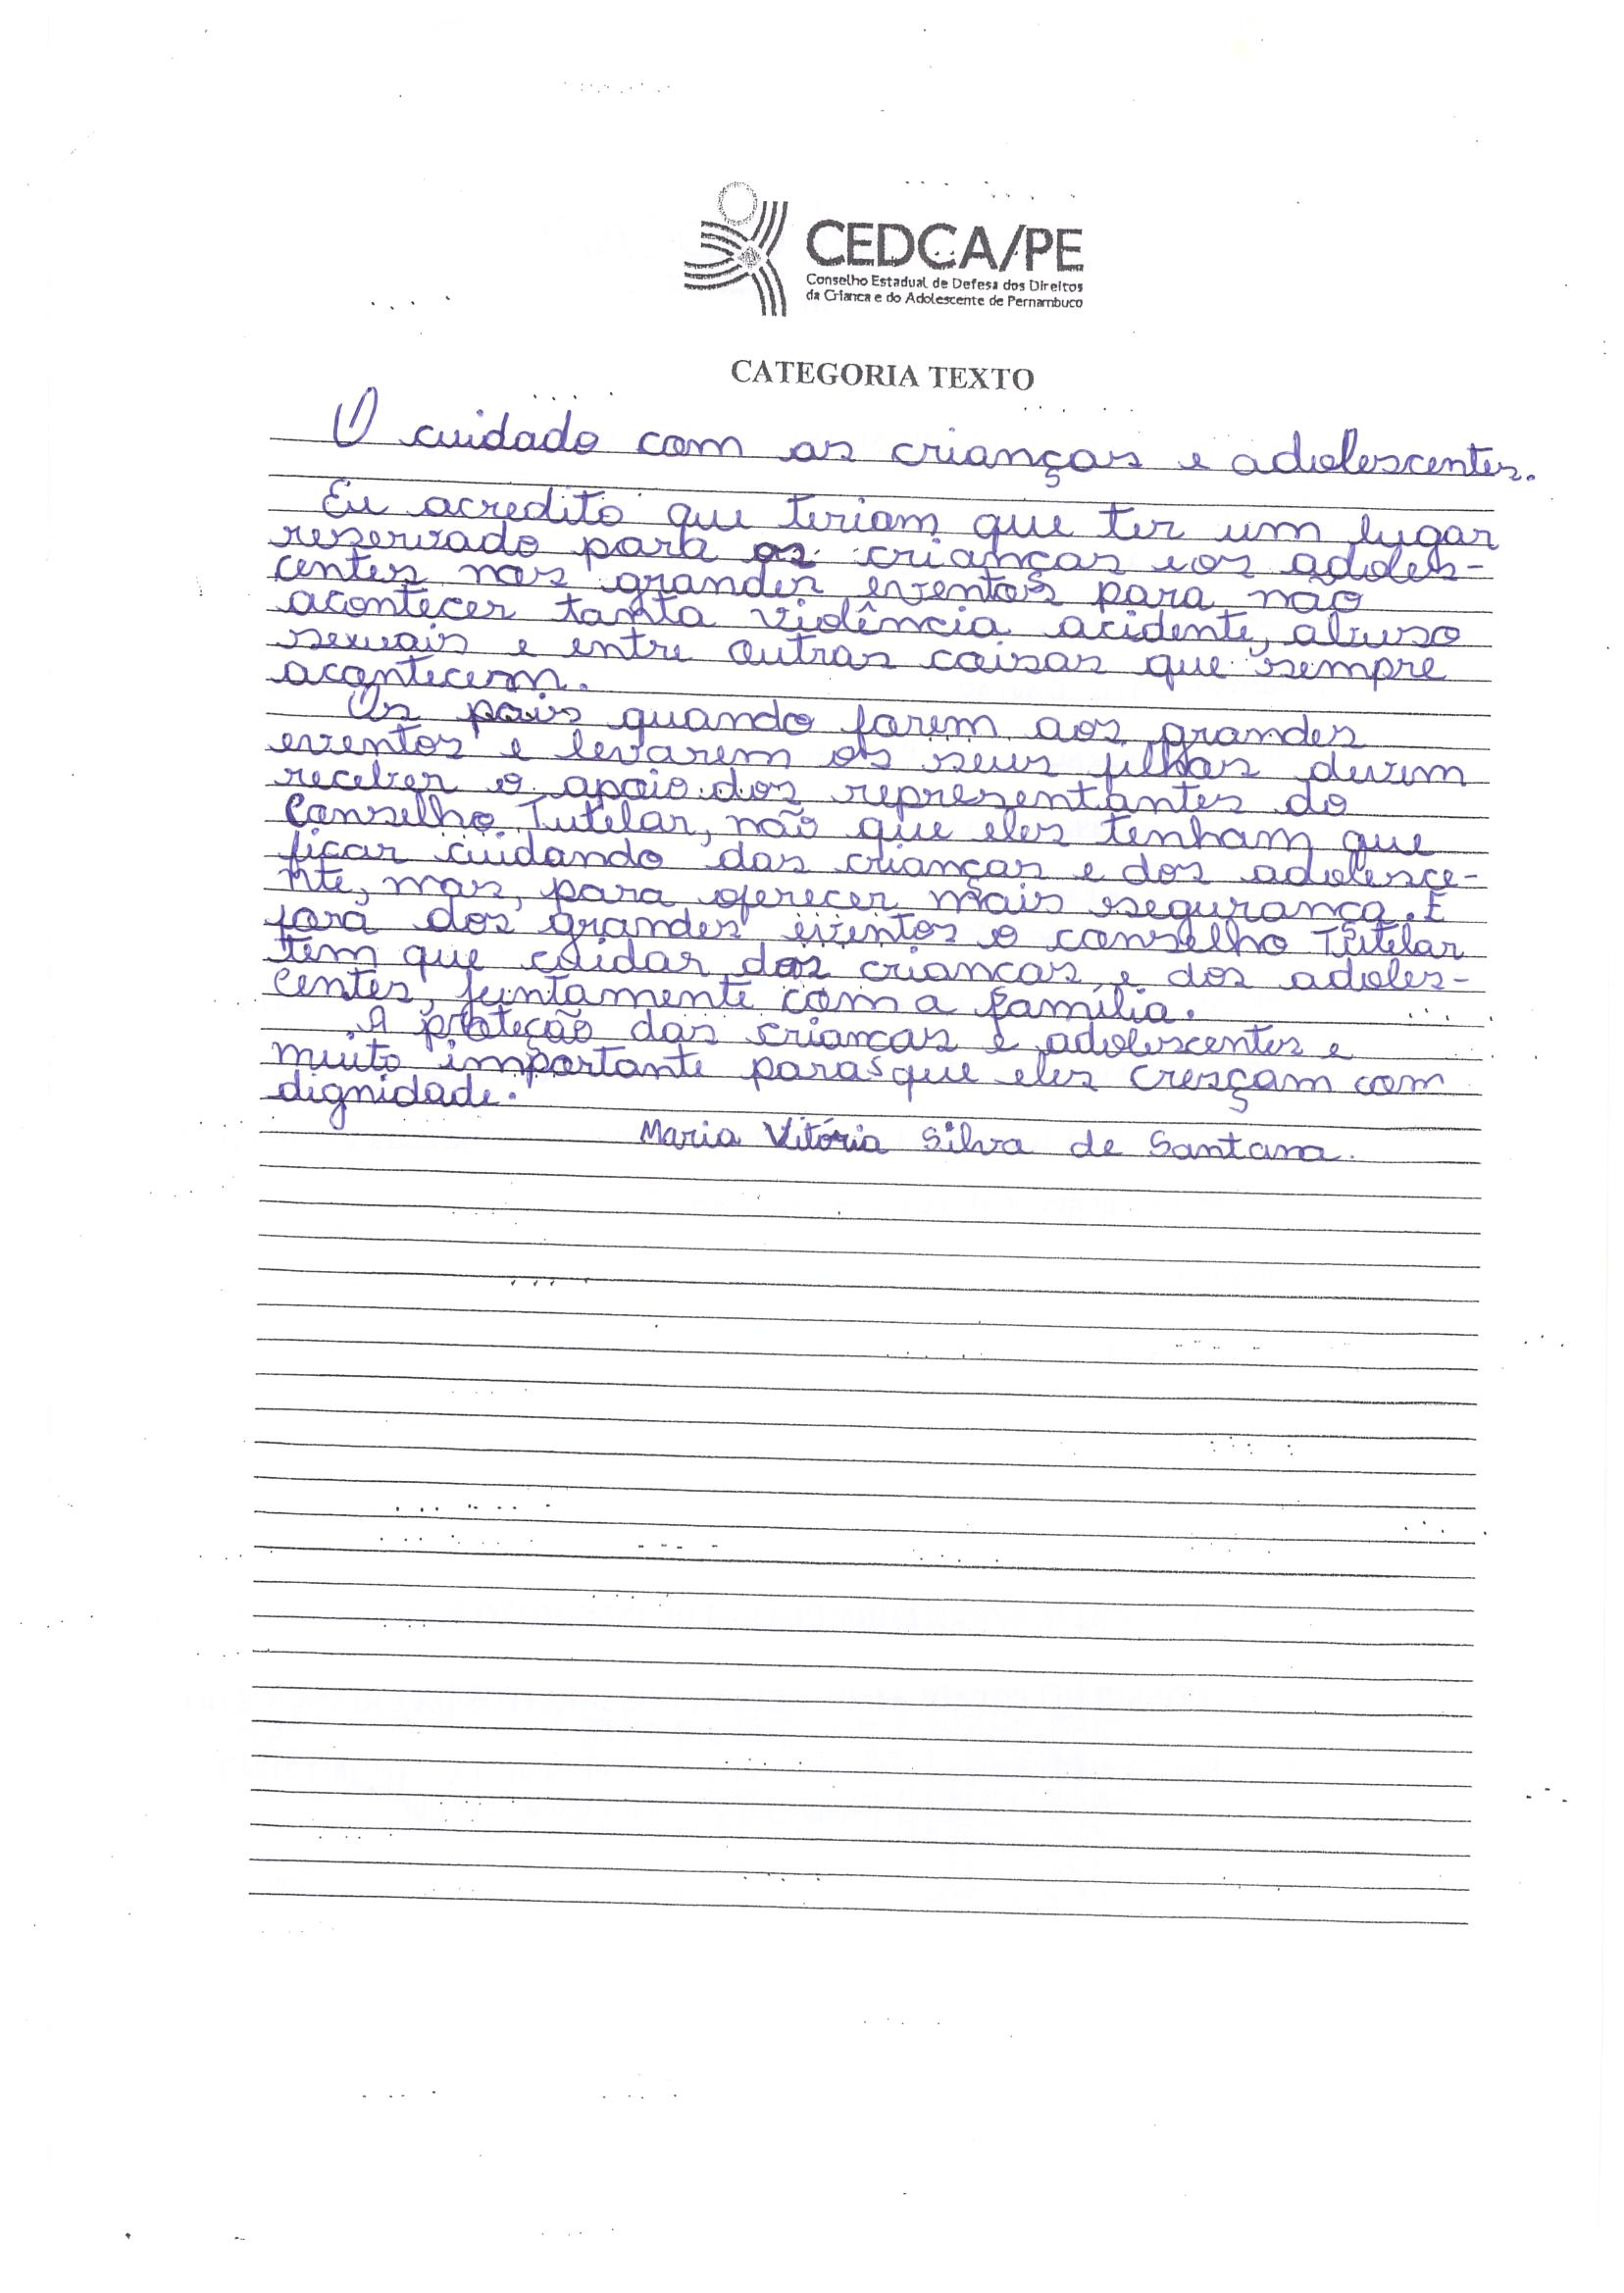 CEDCA/PE
Conselho Estadual de Defesa dos Direitos
da Criança e do Adolescente de Pernambuco
CATEGORIA TEXTO
O cuidado com as crianças e adolescentes.
Eu acredito que teriam que ter um lugar
reservado para as crianças e os adoles-
centes nos grandes eventos para não
acontecer tanta violência acidente, abuso
sexuais e entre outras coisas que sempre
acontecem.
Os pais quando forem aos grandes
eventos e levarem os seus filhos devem
receber o apoio dos representantes do
Conselho Tutelar, não que eles tenham que
ficar cuidando das crianças e dos adolesce-
nte, mas, para oferecer mais segurança. E
fora dos grandes eventos o conselho Tutelar
tem que cuidar das criancas e dos adoles-
centes, juntamente com a família.
A proteção das criancas e adolescentes e
muito importante para que eles cresçam com
dignidade.
Maria Vitória Silva de Santana.